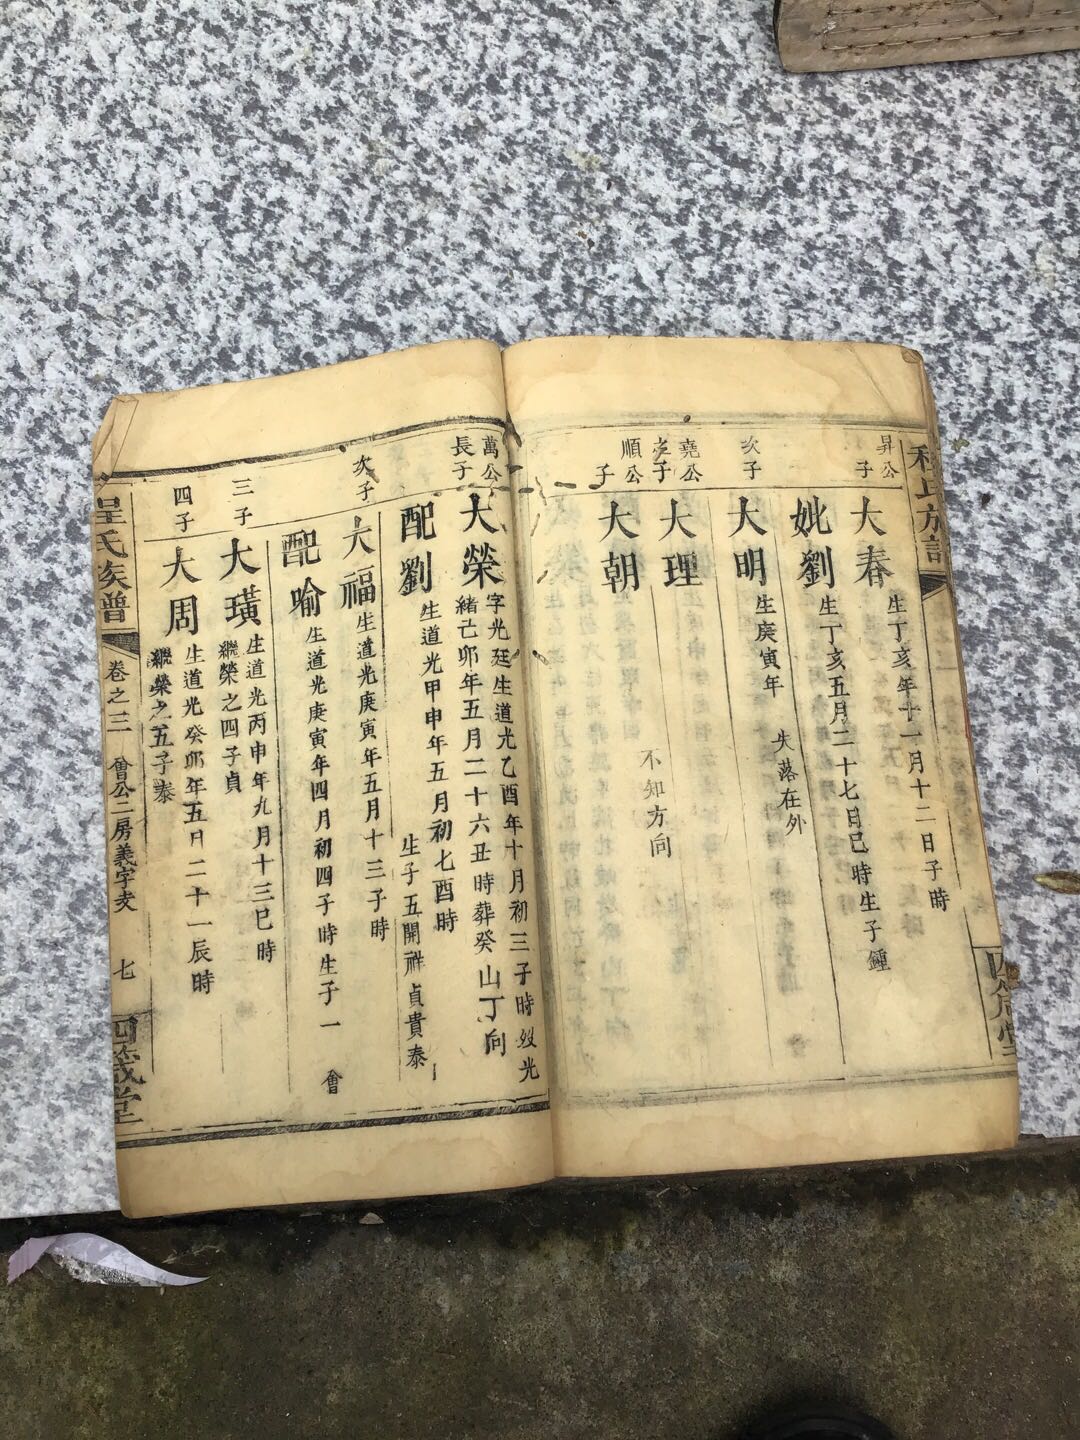 昇公子
大春
生丁亥年十一月十二日子時
妣劉
生丁亥五月二十七日巳時生子鍾
次子
大明
生庚寅年
失落在外
堯公之子
大理
不知方向
順公子
大朝
萬公長子
大榮
字光廷生道光乙酉年十月初三子時歿光
緒己卯年五月二十六丑時葬癸山丁向
配劉
生道光甲申年五月初七酉時
生子五開祥貞貴泰
次子
大福
生道光庚寅年五月十三子時
配喻
生道光庚寅年四月初四子時生子一會
三子
大璜
生道光丙申年九月十三巳時
繼榮之四子貞
四子
大周
生道光癸卯年五月二十一辰時
繼榮之五子泰
程氏族譜
卷之三
會公二房義字支
七
四箴堂